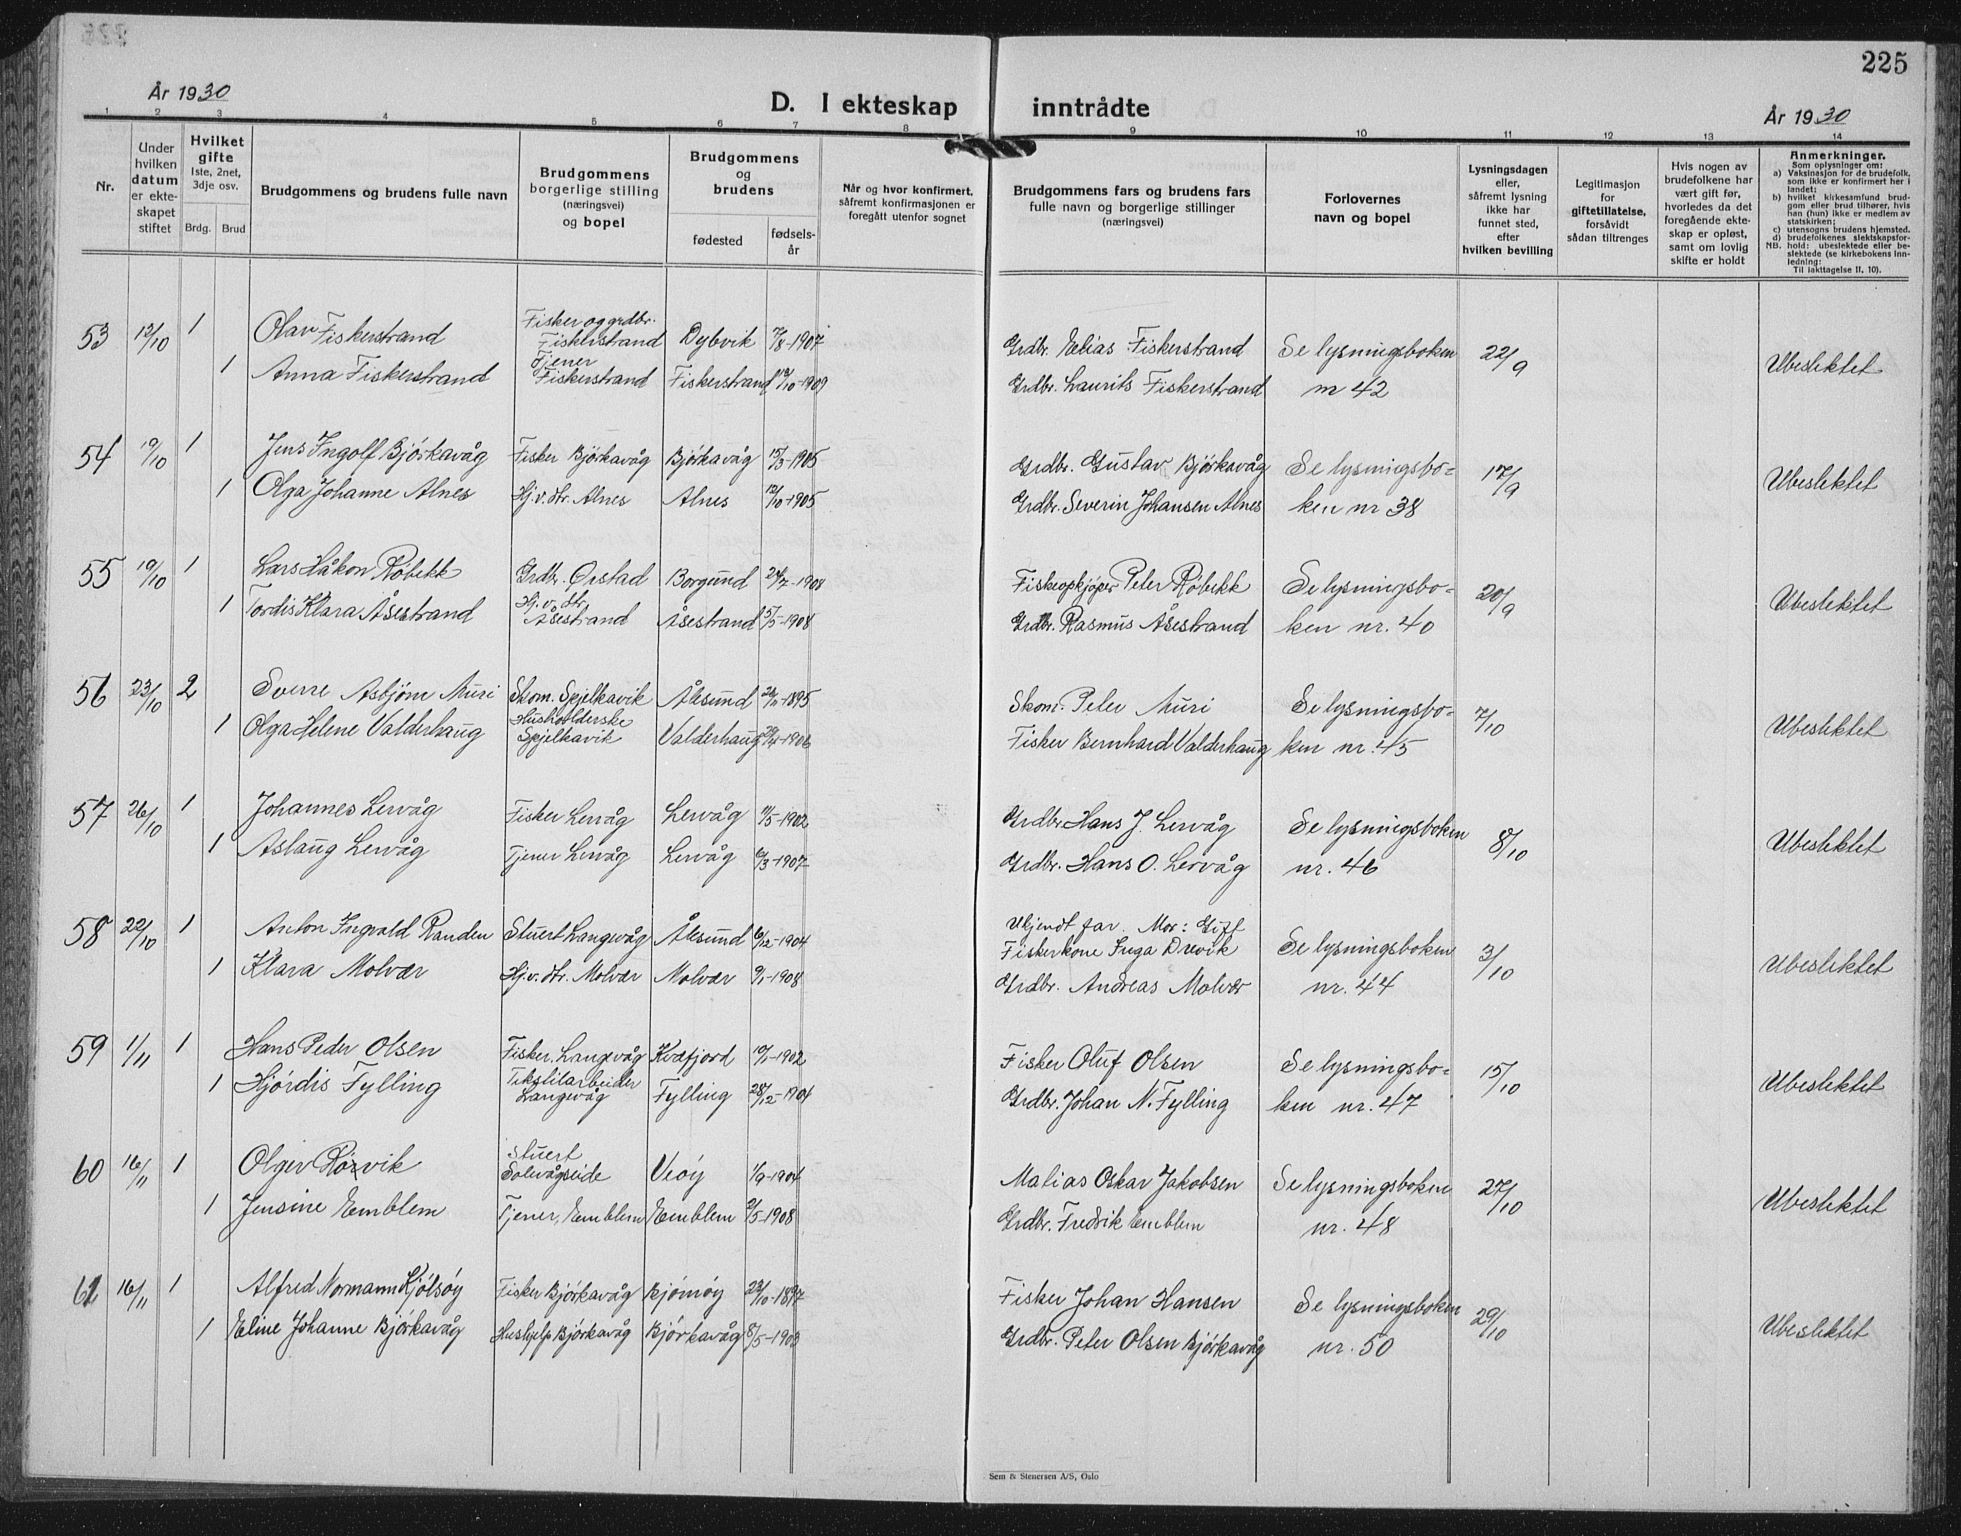 225
År 1930
D. I ekteskap inntrådte
År 1930
1 2 3 4 5 6 7 8 9 10 11 12 13 14
Nr.
Under
hvilken
datum
er ekte-
skapet
stiftet
Hvilket
gifte
1ste, 2net,
3dje osv.
Brdg. Brud
Brudgommens og brudens fulle navn
Brudgommens
borgerlige stilling
(næringsvei)
og bopel
Brudgommens
og
brudens
fødested
fødsels-
år
Når og hvor konfirmert,
såfremt konfirmasjonen er
foregått utenfor sognet
Brudgommens fars og brudens fars
fulle navn og borgerlige stillinger
(næringsvei)
Forlovernes
navn og bopel
Lysningsdagen
eller,
såfremt lysning
ikke har
funnet sted,
efter
hvilken bevilling
Legitimasjon
for
giftetillatelse,
forsåvidt
sådan tiltrenges
Hvis nogen av
brudefolkene har
vært gift før,
hvorledes da det
foregående ekte-
skap er opløst,
samt om lovlig
skifte er holdt
Anmerkninger.
Som oplysninger om:
a) Vaksinasjon for de brudefolk,
som ikke er konfirmert her i
landet;
b) hvilket kirkesamfund brud-
gom eller brud tilhører, hvis
han (hun) ikke er medlem av
statskirken;
c) utensogns brudens hjemsted.
d) brudefolkenes slektskapsfor-
NB. hold: ubeslektede eller be-
slektede (se kirkebokens inn-
ledning:
Til iakttagelse II. 10).
53 12/10 1 Olav Fiskerstrand Fisker og grdbr. Fiskerstrand Dybvik 7/8-1907 Grdbr. Elias Fiskerstrand Se lysningsboken 22/9 Ubeslektet
1 Anna Fiskerstrand Tjener Fiskerstrand Fiskerstrand /10-1909 Grdbr. Laurits Fiskerstrand nr 42
54 19/10 1 Jens Ingolf Bjørkavåg Fisker Bjørkavåg Bjørkavåg 15/3-1905 Grdbr. Gustav Bjørkavåg Se lysningsbo- 17/9 Ubeslektet
1 Olga Johanne Alnes Hj.v. dtr. Alnes Alnes 12/10-1905 Grdbr. Severin Johansen Alnes ken nr 38
55 19/10 1 Lars Håkon Røbekk Grdbr. Ørstad Borgund 24/2-1904 Fiskeopkjøper Peter Røbekk Se lysningsbo- 20/9 Ubeslektet
1 Tordis Klara Åsestrand Hj.v. dtr. Åsestrand Åsestrand 5/5-1908 Grdbr. Rasmus Åsestrand ken nr. 40
56 23/10 2 Sverre Asbjørn Muri Skom. Spjelkavik Ålesund 26/11-1895 Skom. Peter Muri Se lysningsbo- 7/10 Ubeslektet
1 Olga Helene Valderhaug Husholderske Spjelkavik Valderhaug -1906 Fisker Bernhard Valderhaug ken nr. 45
57 26/10 1 Johannes Lervåg Fisker Lervåg Lervåg 11/5-1902 Grdbr Hans J. Lervåg Se lysningsboken 8/10 Ubeslektet
1 Aslaug Lervåg Tjener Lervåg Lervåg 6/3-1907 Grdbr. Hans O. Lervåg nr. 46
58 22/10 1 Anton Ingvald Randen Stuert Langevåg Ålesund 6/12-1904 Ukjendt far. Mor: Gift Fiskerkone Inga Drevik Se lysningsboken 3/10 Ubeslektet
1 Klara Molvær Hj.v. dtr. Molvær Molvær 9/1-1908 Grdbr. Andreas Molvær nr. 44
59 1/11 1 Hans Peder Olsen Fisker, Langevåg Kvæfjord 10/1-1902 Fisker Oluf Olsen Se lysningsbo- 15/10 Ubeslektet
1 Hjørdis Fylling Tekstilarbeider Langevåg Fylling 28/12-1904 Grdbr. Johan N. Fylling ken nr. 47
60 16/11 1 Olger Røzvik Stuert Solevågseide Veøy 1/9-1904 Matias Oskar Jakobsen Se lysningsboken 27/10 Ubeslektet
1 Jensine Emblem Tjener, Emblem Emblem 2/5-1908 Grdbr. Fredrik Emblem nr. 48
61 16/11 1 Alfred Normann Kjølsøy Fisker Bjørkavåg Bjørnøy 23/10-1897 Fisker Johan Hansen Se lysningsboken 29/10 Ubeslektet
1 Eline Johanne Bjørkavåg Hushjelp Bjørkavåg Bjørkavåg 8/5-1903 Grdbr. Peter Olsen Bjørkavåg nr. 50
Sem & Stenersen A/S, Oslo